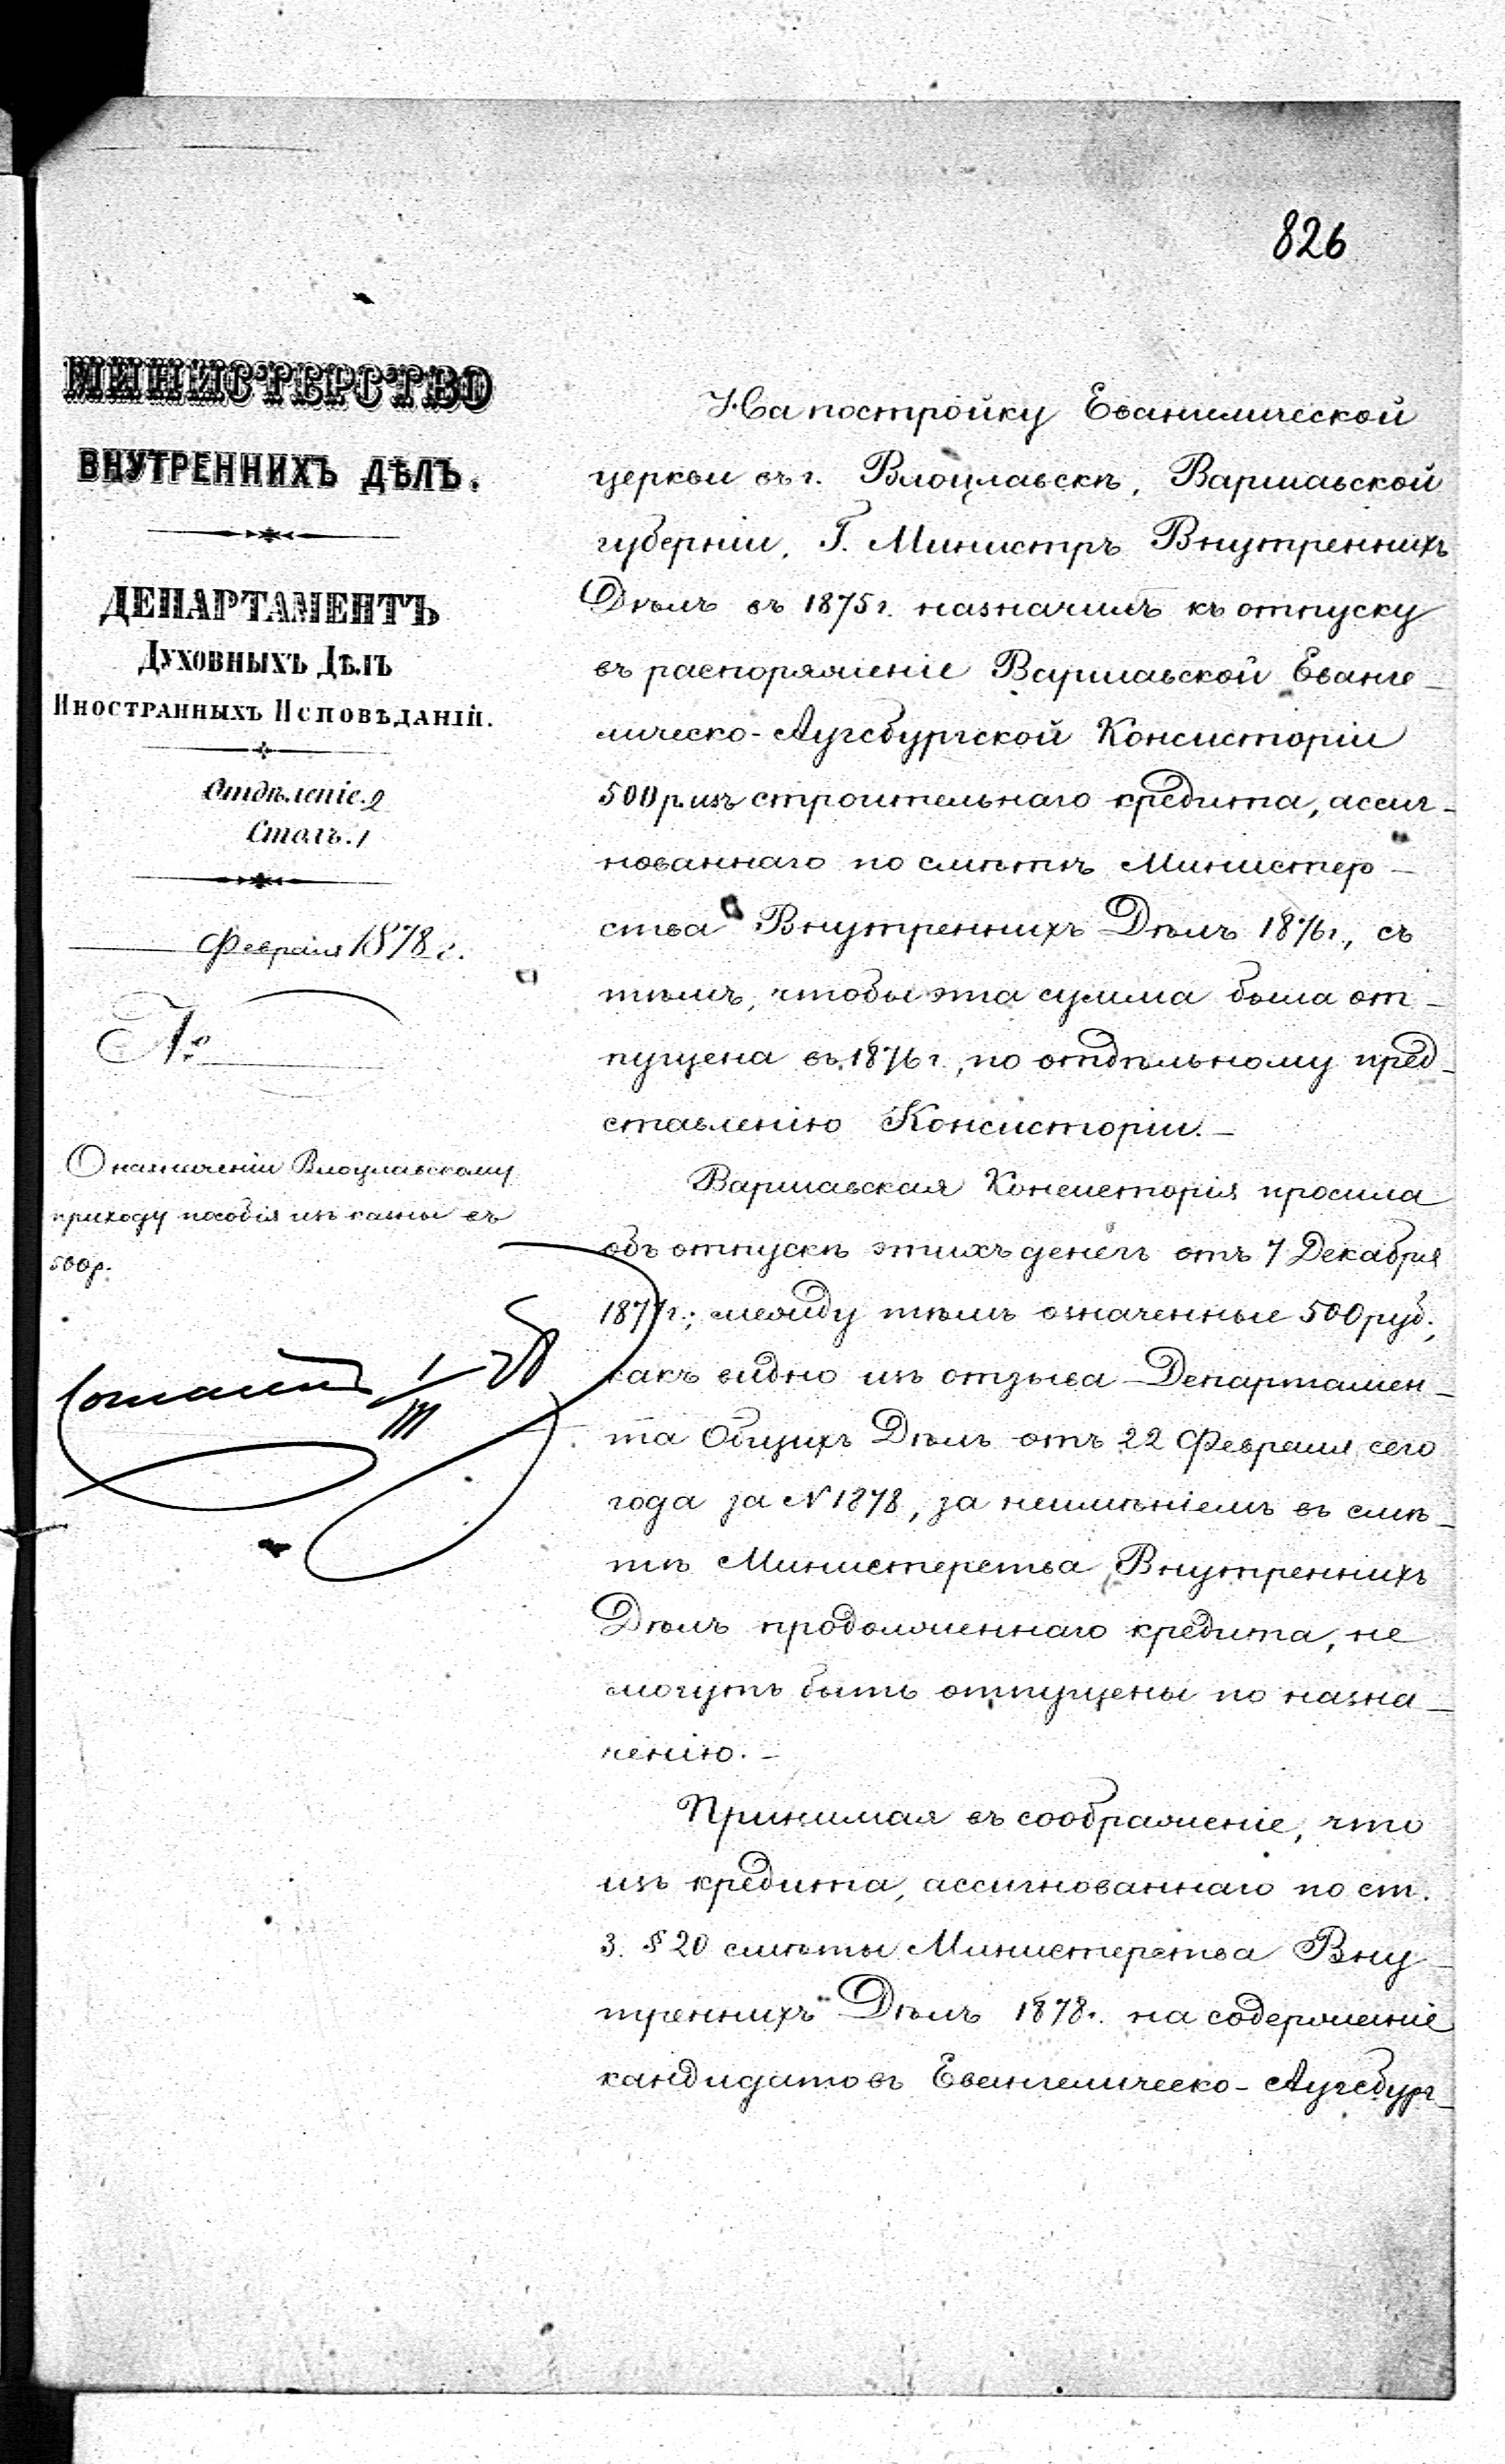 826
МИНИСТЕРСТВО
ВНУТРЕННИХЪ ДѢЛЪ.
ДЕПАРТАМЕНТЪ
Духовныхъ Дѣлъ
Иностранныхъ Исповѣданій.
Отдѣленіе. 2
Столъ. 1
Февраля 1878 г.
№
О назначеніи Влоцлавскому
приходу пособія изъ казны въ
500 р.
На постройку Евангелической
церкви въ г. Влоцлавскѣ, Варшавской
губерніи, Г. Министръ Внутреннихъ
Дѣлъ въ 1875 г. назначилъ къ отпуску
въ распоряженіе Варшавской Еванге-
лическо-Аугсбургской Консисторіи
500 р. изъ строительнаго кредита, ассиг-
нованнаго по смѣтѣ Министер-
ства Внутреннихъ Дѣлъ 1876 г., съ
тѣмъ, чтобы эта сумма была от-
пущена въ 1876 г., по отдѣльному пред-
ставленію Консисторіи.-
Варшавская Консисторія просила
объ отпускѣ этихъ денегъ отъ 7 Декабря
1877 г.; между тѣмъ означенные 500 руб.,
какъ видно изъ отзыва Департамен-
та Общихъ Дѣлъ отъ 22 Февраля сего
года за N 1878, за неимѣніемъ въ смѣ-
тѣ Министерства Внутреннихъ
Дѣлъ продолженнаго кредита, не
могутъ быть отпущены по назна-
ченію.-
Принимая въ соображеніе, что
изъ кредита, ассигнованнаго по ст.
3. § 20 смѣты Министерства Вну-
треннихъ Дѣлъ 1878 г. на содержаніе
кандидатовъ Евангелическо-Аугсбург-